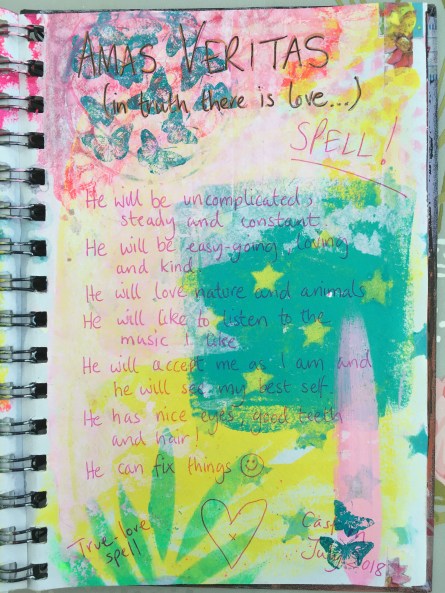 AMAS VERITAS
(in truth there is love...)
SPELL!
He will be uncomplicated,
steady and constant
He will be easy-going, loving
and kind
He will love nature and animals
He will like to listen to the
music I like
He will accept me as I am and
he will see my best self.
He has nice eyes, good teeth
and hair!
He can fix things
True-love
spell